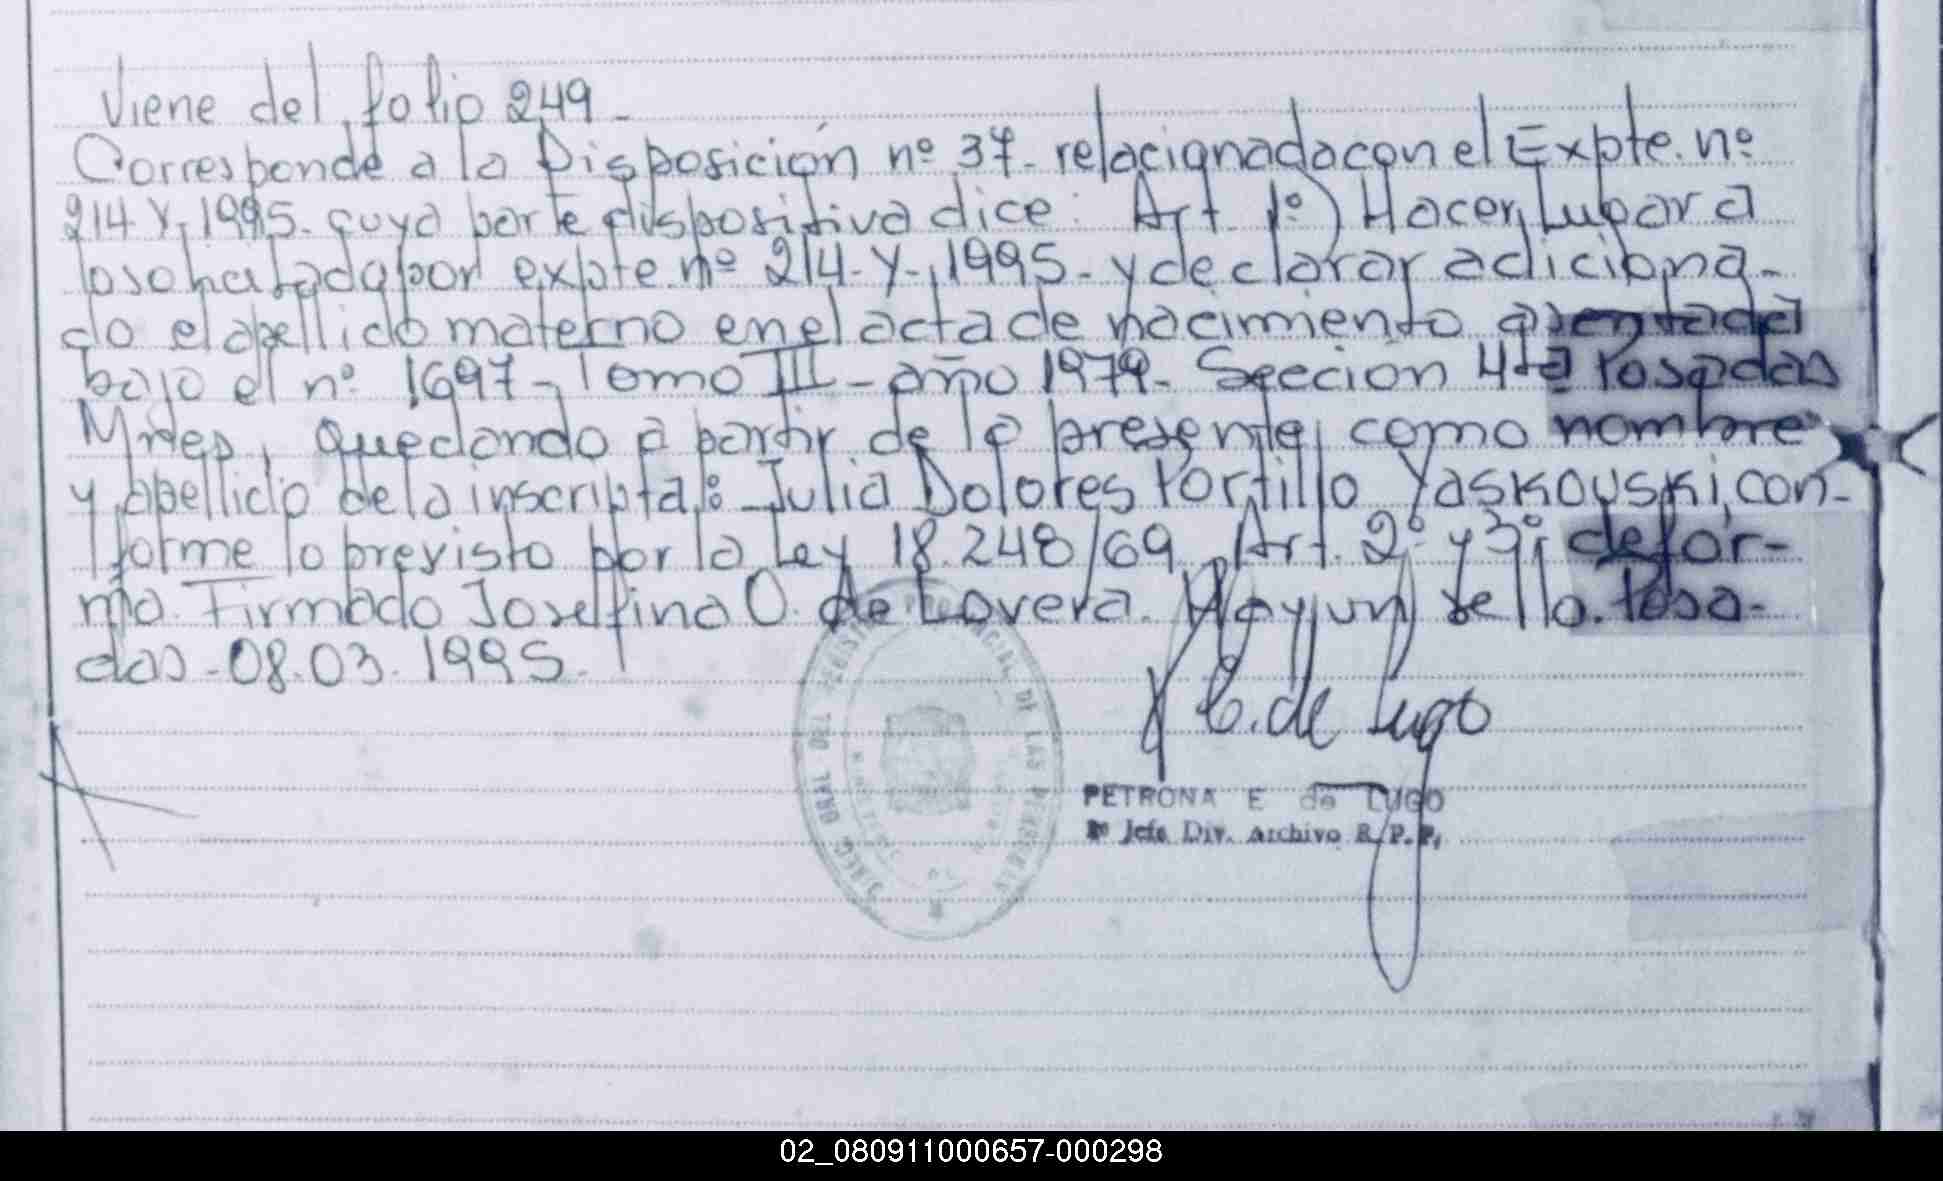 Viene del folio 249_
Corresponde a la Disposición nº 37- relacionada con el Expte. nº
214-Y-1995- cuya parte dispositiva dice: Art 1º) Hacer Lugar a
lo sohcitado por expte. nº 214-Y-1995- y declarar adiciona-
do el apellido materno en el acta de nacimiento asentada
bajo el nº 1697- Tomo III - año 1979- Seeción 4ta Posadas
Mnes, quedando a partir de la presente, como nombre
y apellido de la inscripta: Julia Dolores Portillo Yaskouski, con-
forme lo previsto por la Ley 18.248/69. Art. 2º y 3º; de for-
ma. Firmado Josefina O. de Lovera. Hay un sello. Posa-
das - 08.03.1995.-
DIREC. GRAL. DEL REGISTRO PROVINCIAL DE LAS PERSONAS
E. de Lugo
PETRONA E de LUGO
2º Jefe Div. Archivo R.P.P.
02_080911000657-000298